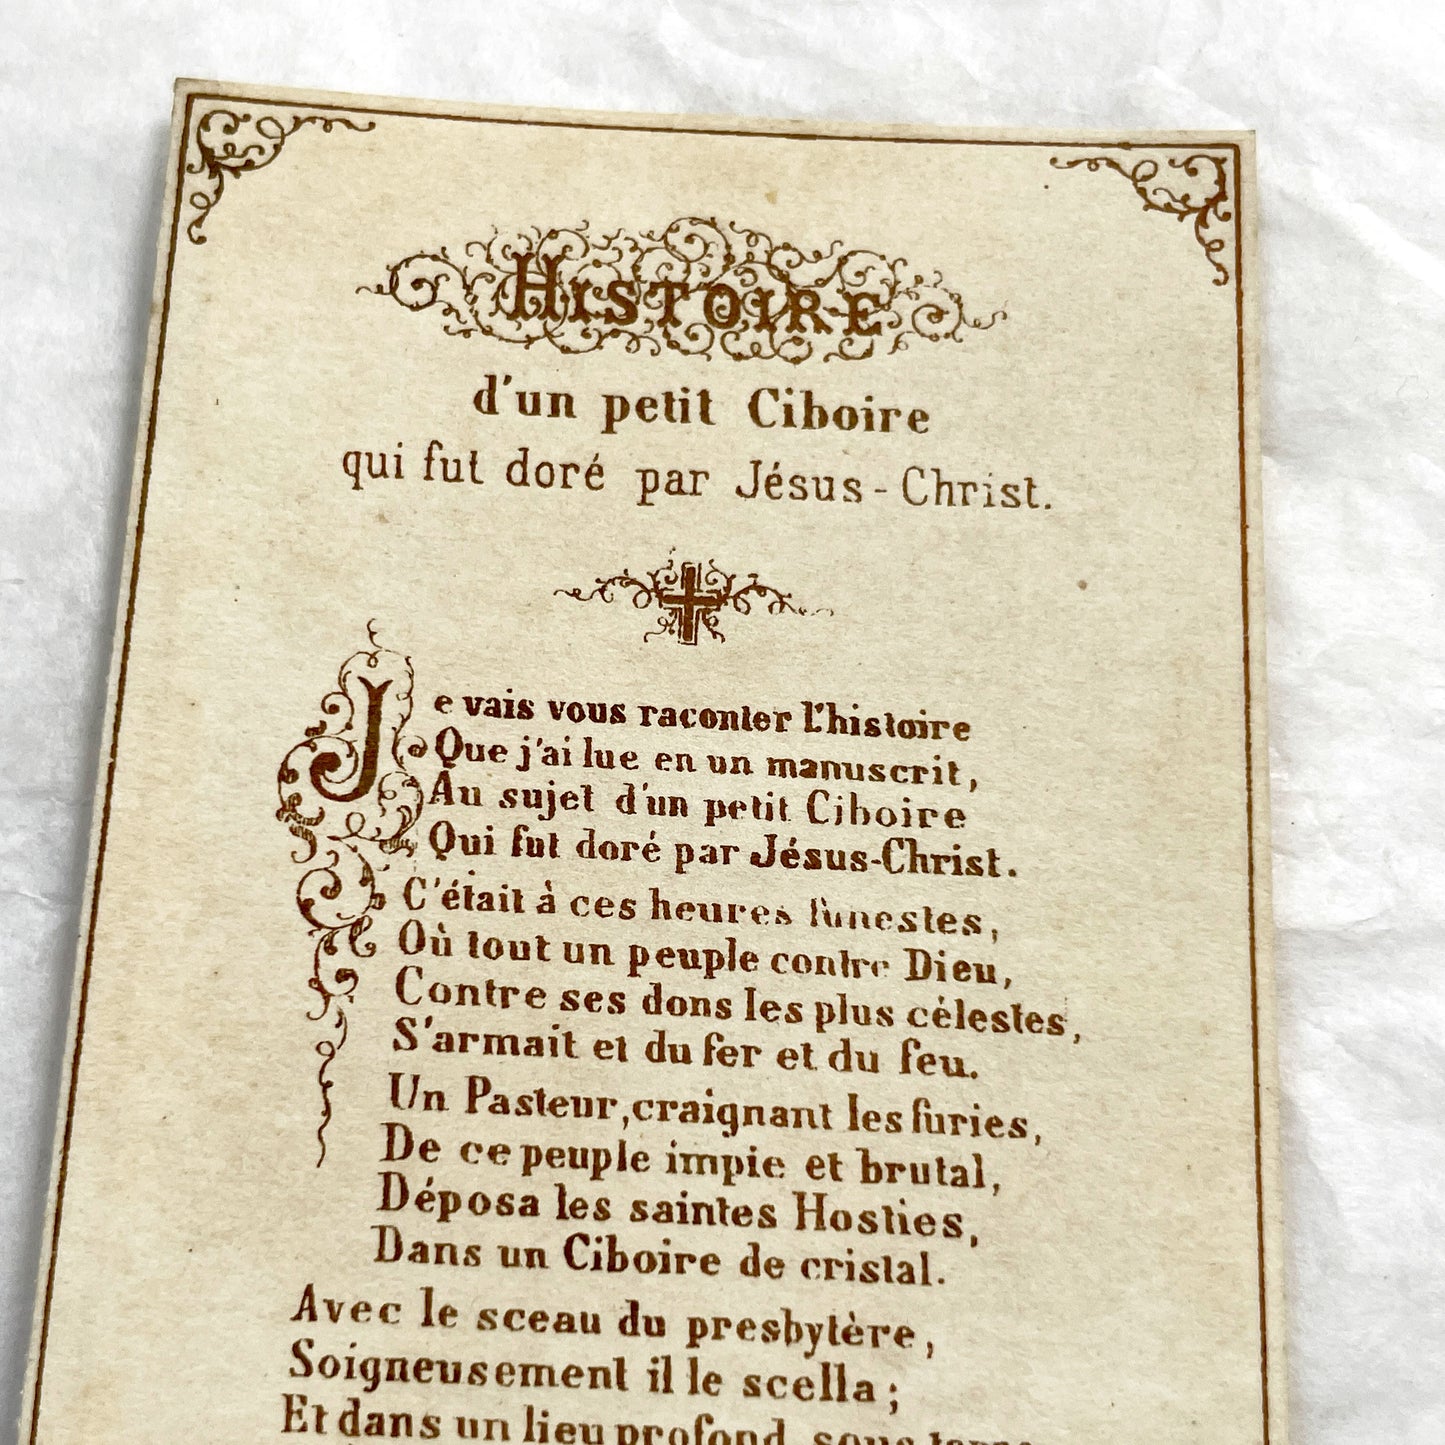 HISTOIRE
d'un petit Ciboire
qui fut doré par Jésus-Christ.
Je vais vous raconter l'histoire
Que j'ai lue en un manuscrit,
Au sujet d'un petit Ciboire
Qui fut doré par Jésus-Christ.
C'était à ces heures funestes,
Où tout un peuple contre Dieu,
Contre ses dons les plus célestes,
S'armait et du fer et du feu.
Un Pasteur, craignant les furies,
De ce peuple impie et brutal,
Déposa les saintes Hosties,
Dans un Ciboire de cristal.
Avec le sceau du presbytère,
Soigneusement il le scella;
Et dans un lieu profond, sous terre